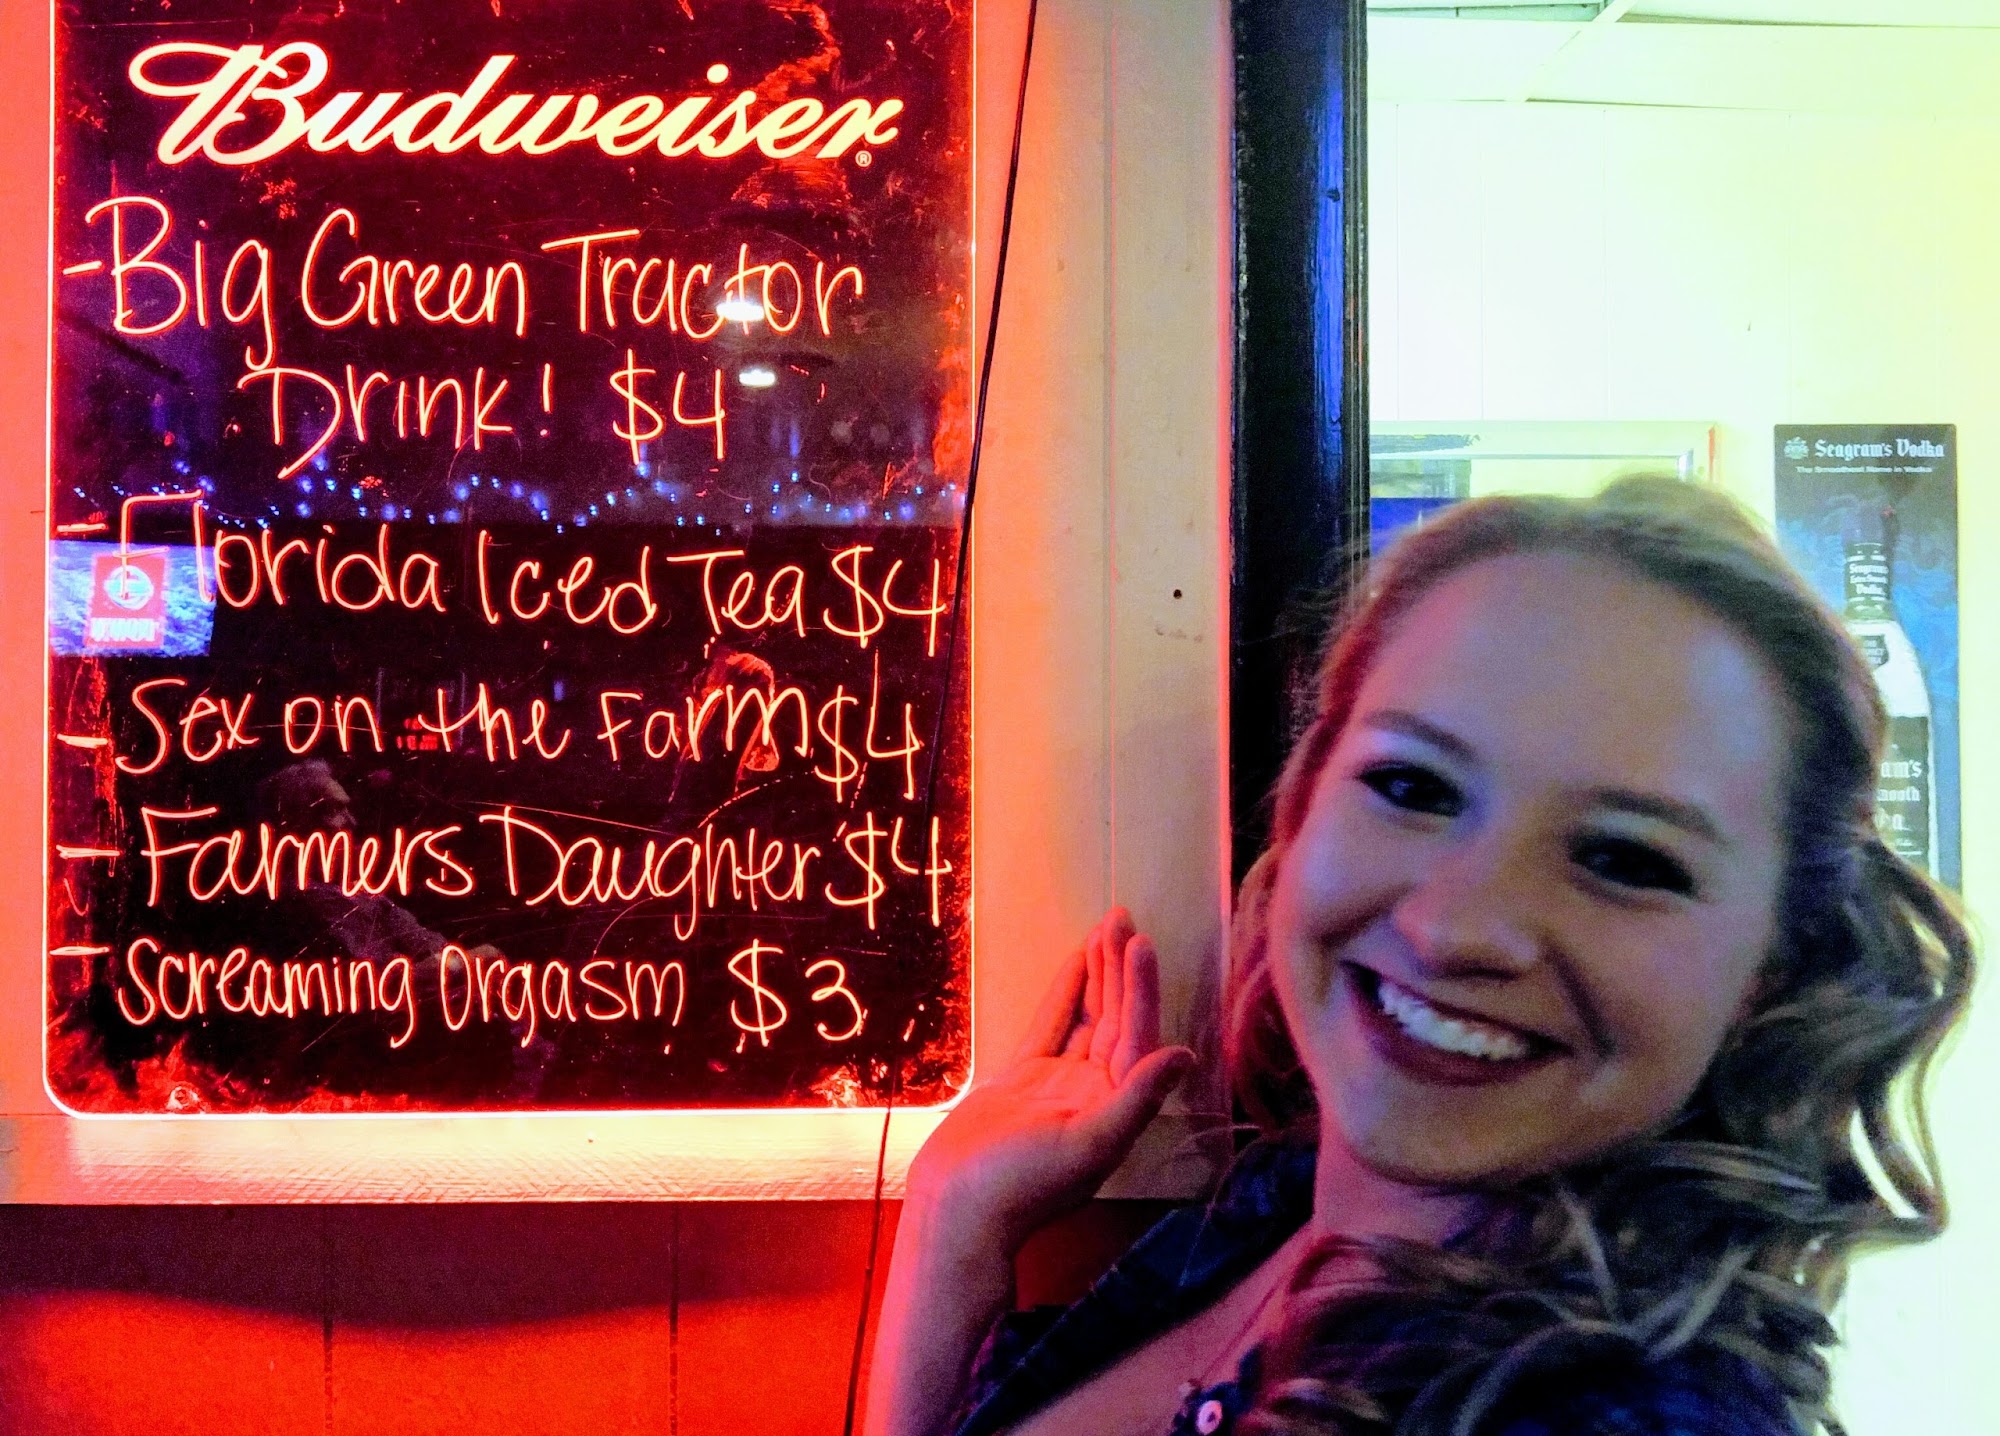 Budweiser®
-Big Green Tractor
Drink! $4
-Florida Iced Tea $4
- Sex on the Farm $4
- Farmers Daughter $4
- Screaming Orgasm $3
Seagram's Vodka
The Smoothest Name in Vodka
Seagram's
Extra Smooth
Vodka
am's
mooth
ka